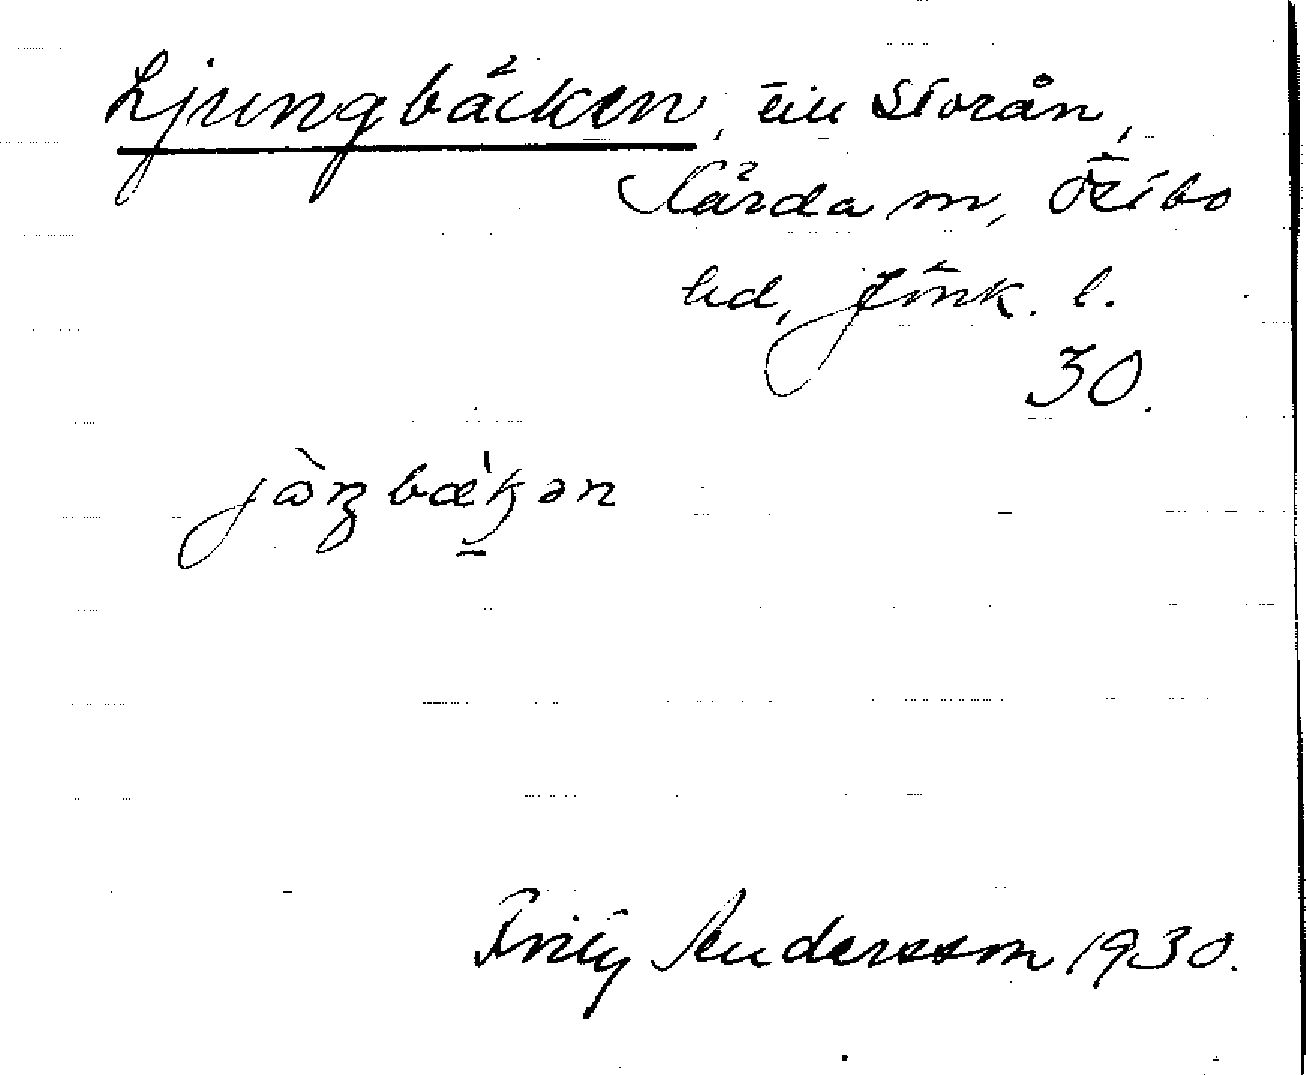 Ljungbäcken, till Storån,
Kärda sn, Östbo
hd, Jönk. l.
30.
jòŋbæ̀kən
Fritz Andersson 1930.